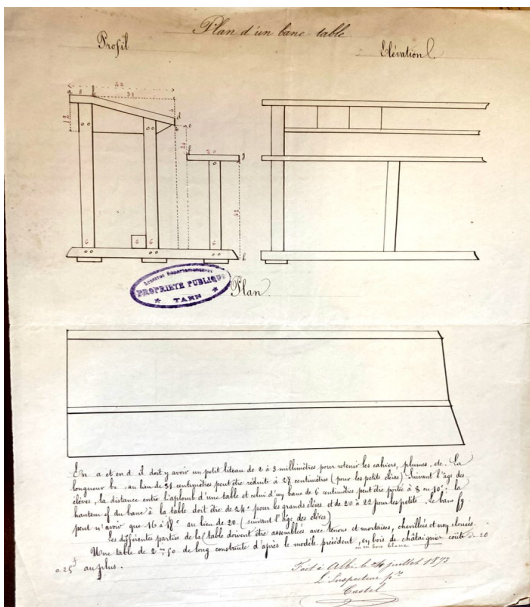 Plan d'un banc table
Profil
Elévation
Archives Départementales
PROPRIÉTÉ PUBLIQUE
★ TARN ★
Plan
En a et en d il doit y avoir un petit liteau de 2 à 3 millimètres pour retenir les cahiers, plumes, etc. La
longueur bc au lieu de 31 centimètres peut être réduite à 27 centimètres (pour les petits élèves). Suivant l'âge des
élèves, la distance entre l'aplomb d'une table et celui d'un banc de 6 centimètres peut être portée à 8 ou 10c. la
hauteur f du banc à la table doit être de 24c pour les grands élèves et de 20 à 22 pour les petits. le banc fg
peut n'avoir que 16 à 18c au lieu de 20. (suivant l'âge des élèves)
Les différentes parties de la table doivent être assemblées avec tenons et mortaises, chevillées et non clouées.
Une table de 2m50 de long construite d'après le modèle précédent, en bois de châtaignier coûte 20
ou en bois blanc
à 25f au plus.
Fait à Albi, le 24 juillet 1873
L'Inspecteur pre
Castel